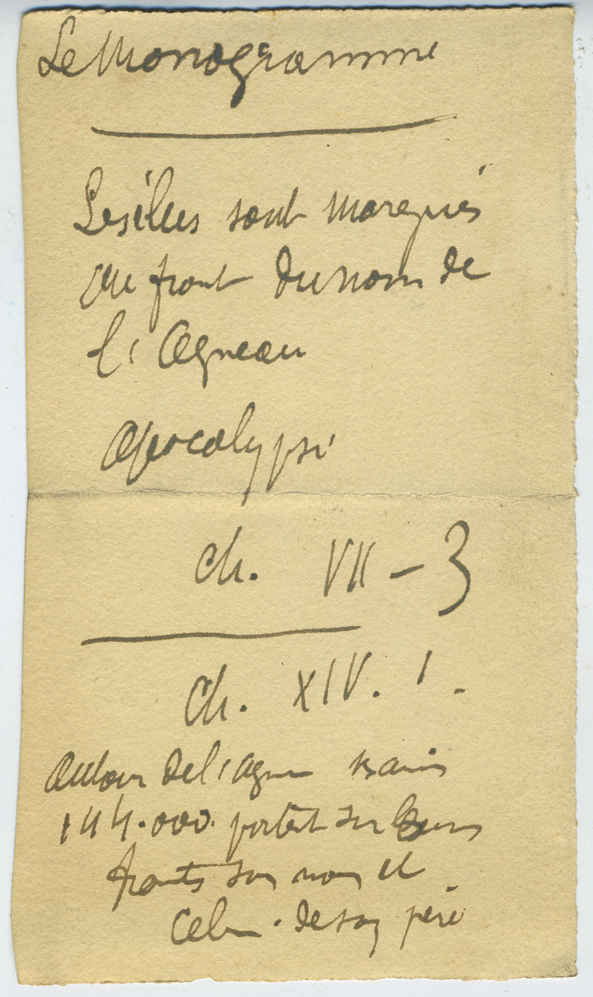 Le Monogramme
Les élus sont marqués
au front du nom de
l'Agneau
Apocalypse
ch. VII - 3
Ch. XIV. 1.
Autour de l'agneau
144.000. portent sur leurs
fronts son nom et
Celui de son père